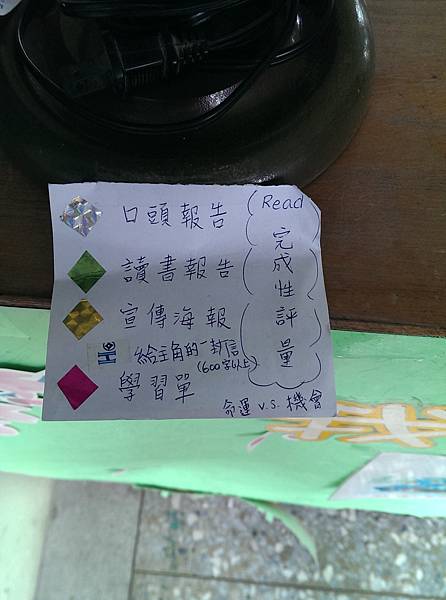 口頭報告
讀書報告
宣傳海報
給主角的一封信
(600字以上)
學習單
Read
完成性評量
命運 v.s. 機會